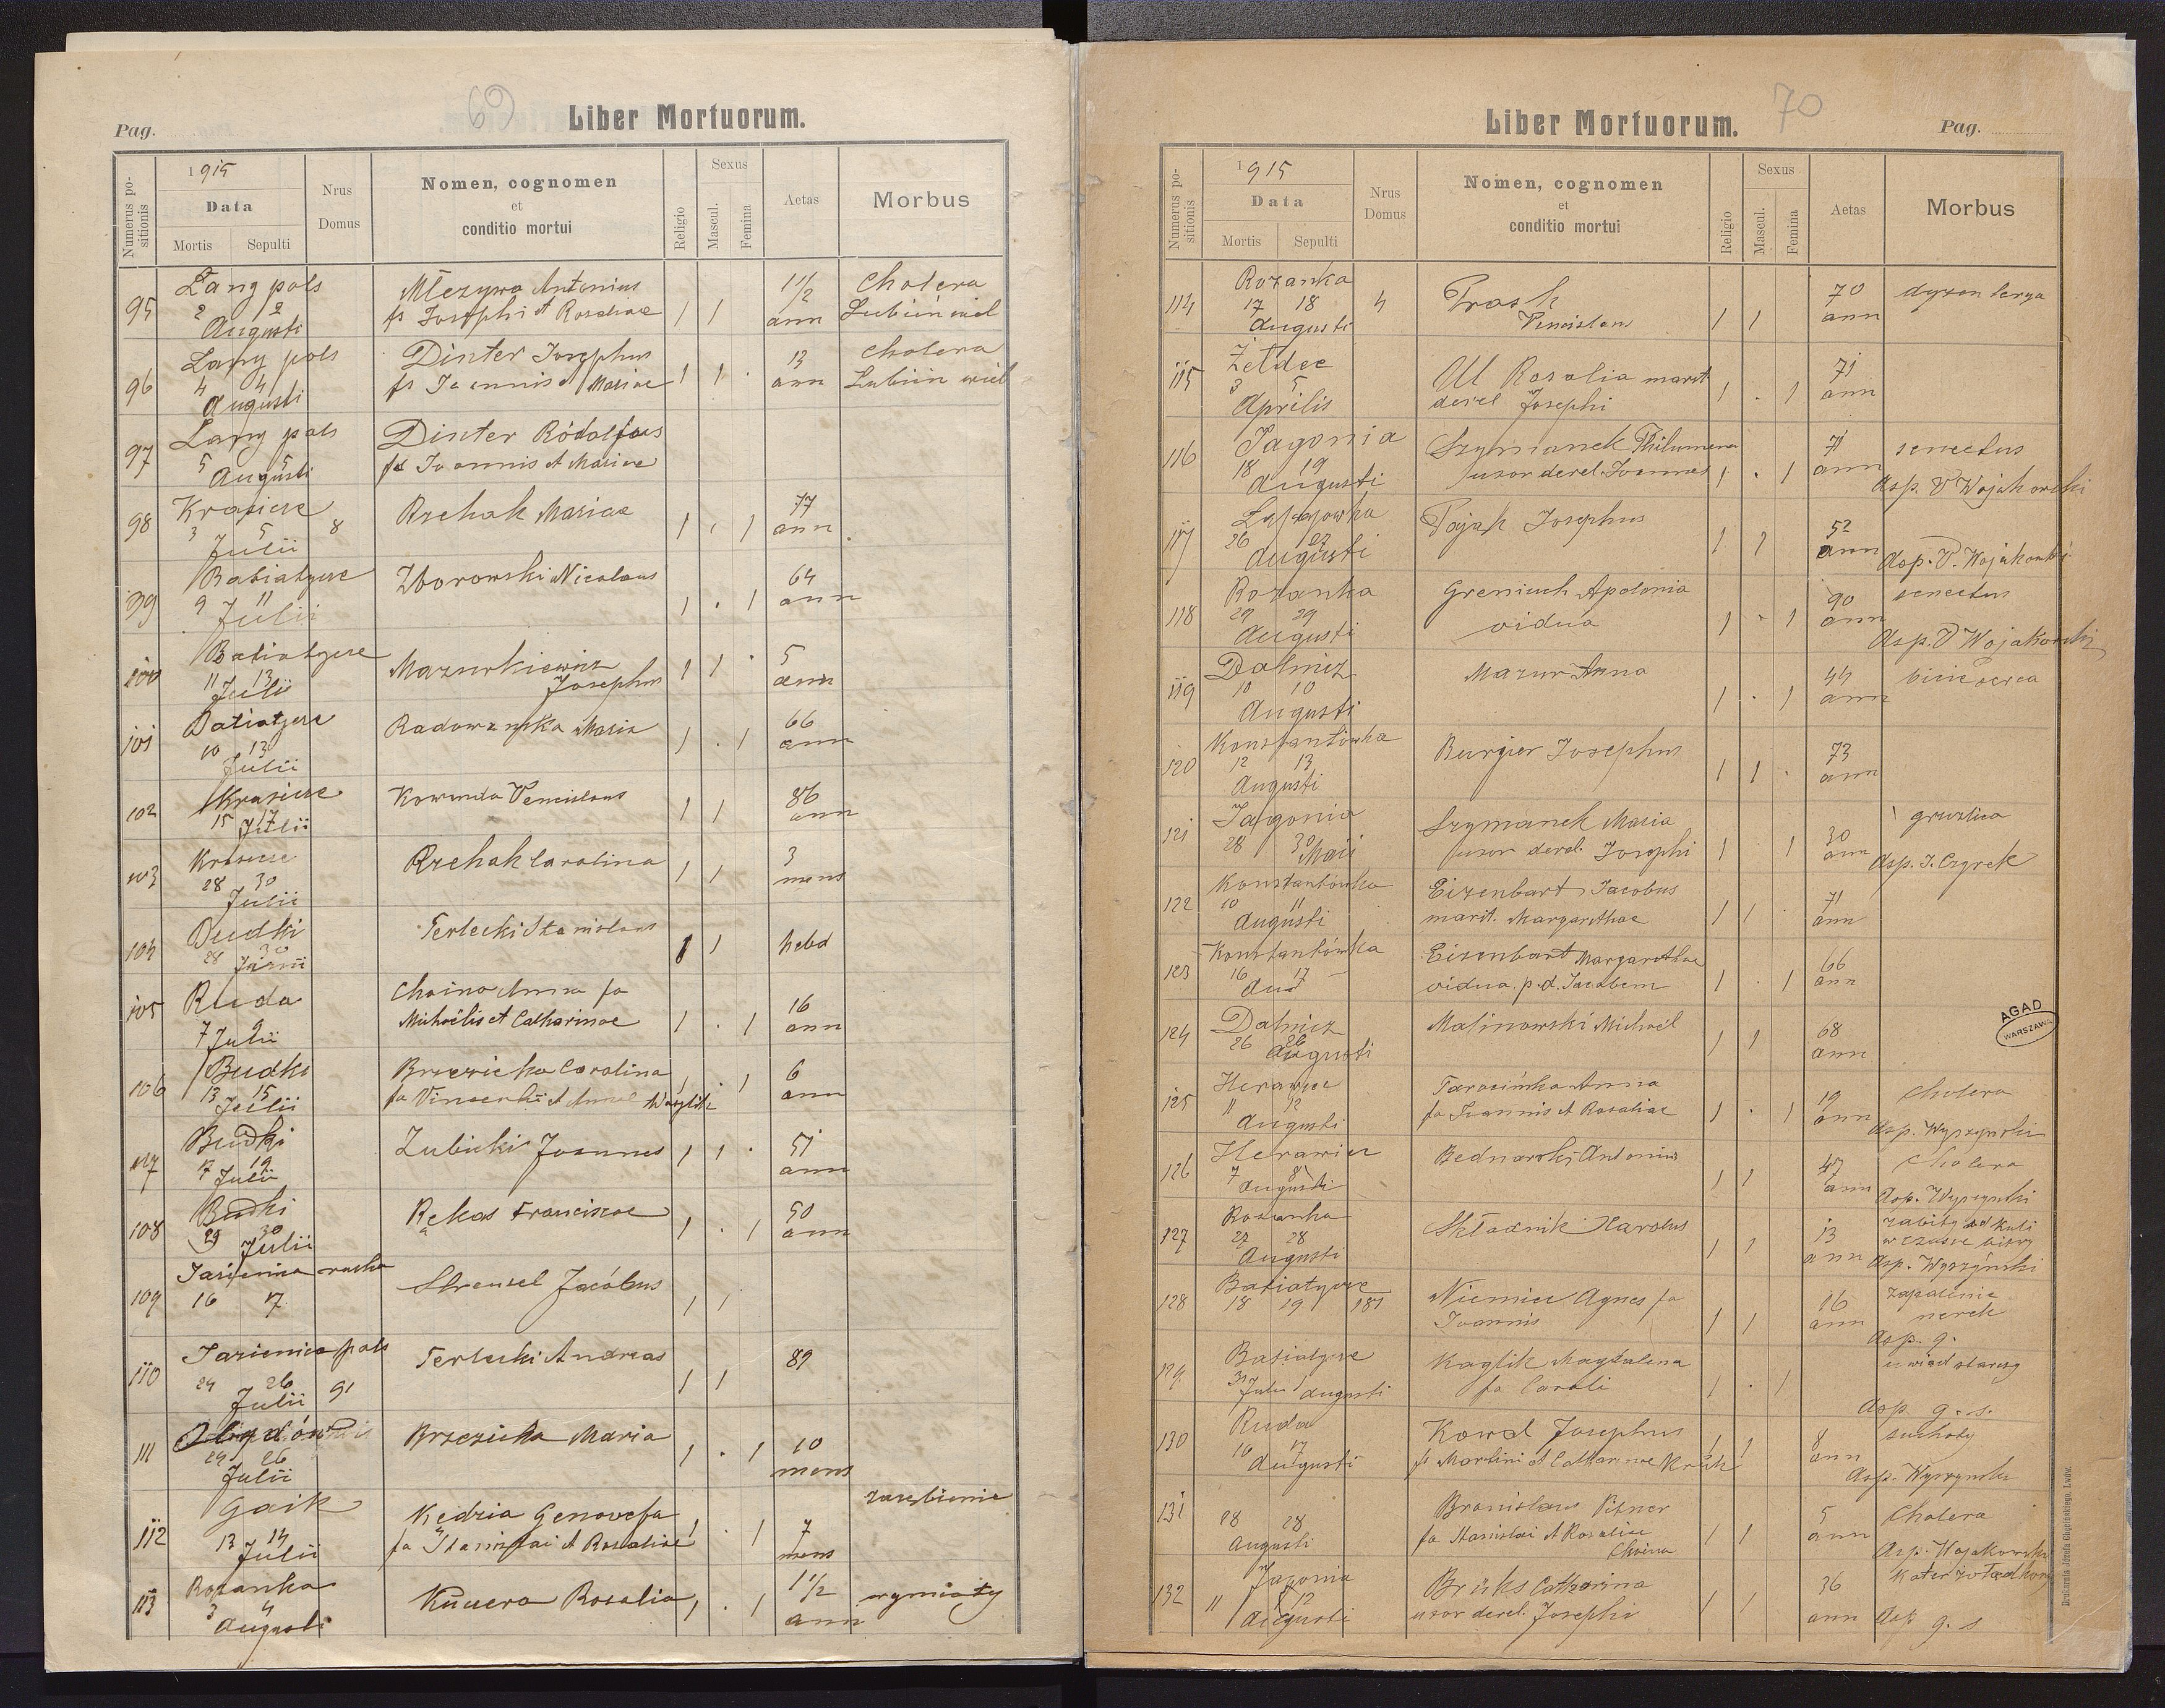 69
Pag.
Liber Mortuorum.
Numerus positionis
1915
Data
Mortis
Sepulti
Nrus Domus
Nomen, cognomen
et
conditio mortui
Religio
Sexus
Mascul.
Femina
Aetas
Morbus
95 Lang pols 2 2 Augusti
Mlezywo Antonius
fs Josephi et Rosaliae 1 1
1 1/2 ann
Cholera
Lubiin wiel
96 Lang pols 4 4 Augusti
Dinter Josephus
fs Joannis et Mariae 1 1 .
13 ann
Cholera
Lubiin wiel
97 Lang pols 5 5 Augusti
Dinter Rodolfus
fs Joannis et Mariae
98 Krasicze 3 5 Julii 8
Rzehak Mariae 1 . 1
77 ann
99 Batiatycze 9 11 Julii
Zborowski Nicolaus 1 . 1
64 ann
100 Batiatycze 11 13 Julii
Mazurkiewicz
Josephus 1 1 .
5 ann
101 Batiatycze 10 13 Julii
Maria 1 . 1
66 ann
102 Krasicze 15 17 Julii
Venceslaus 1 1
86 ann
103 Krasicze 28 30 Julii
Rzehak Carolina 1 1
3 mens
104 Budki 28 30
Terlecki Stanislaus 1 1
hebd
105 Ruda 7 9 Julii
Choina Anna fa
Michaëlis et Catharinae 1 . 1
16 ann
106 Budki 13 15 Julii
Brzezicka Carolina
fa Vincentii et Annae 1 . 1
6 ann
107 Budki 17 19 Julii
Zubicki Joannes 1 1 .
51 ann
108 Budki 29 30 Julii
Rękas Franciscae 1 . 1
50 ann
109 Jasienica ruska 16 17
Strensel Jacobus 1 1
110 Jasienica pols 24 26 Julii 91
Terlecki Andreas 1 1
89
111 24 26 Julii
Brzezicka Maria 1 . 1
10 mens
112 Gaik 13 14 Julii
Kedzia Genovefa
fa Stanislai et Rosaliae 1 . 1
7 mens
zaziębienie
113 Rozanka 3 4 Augusti
Kucera Rosalia 1 . 1
1 1/2 ann
wymioty
70
Liber Mortuorum.
Pag.
Numerus positionis
1915
Data
Mortis
Sepulti
Nrus Domus
Nomen, cognomen
et
conditio mortui
Religio
Sexus
Mascul.
Femina
Aetas
Morbus
114 Rozanka 17 18 Augusti 4
Prask
Venceslaus 1 1
70 ann
dyzenterya
115 Żeldec 3 5 Aprilis
Ul Rosalia marit
derel Josephi 1 . 1
71 ann
116 Jagonia 18 19 Augusti
Szymanek Philumena
uxor derel. Joannes 1 . 1
71 ann
senectus
Asp. V Wojakowski
117 26 27 Augusti
Pająk Josephus 1 1
52 ann
Asp. V. Wojakowski
118 Rozanka 29 29 Augusti
Greniuch Apolonia
vidua 1 . 1
90 ann
senectus
Asp. V Wojakowski
119 Dalnicz 10 10 Augusti
Mazur Anna 1 . 1
44 ann
bicie serca
120 Konstantówka 12 13 Augusti
Burgier Josephus 1 1 .
73 ann
121 Jagonia 28 30 Maii
Szymanek Maria
uxor derel. Josephi 1 1
30 ann
gruzlica
Asp. J. Czyrek
122 Konstantówka 10 11 Augusti
Eizenbart Jacobus
marit. Margarethae 1 1 .
71 ann
123 Konstantówka 16 17
Eizenbart Margarethae
vidua p.d. Jacobem 1 . 1
66 ann
124 Dalnicz 26 26 Augusti
Malinowski Michaël 1 1
68 ann
AGAD
WARSZAWA
125 11 12 Augusti
Tarasinka Anna
fa Joannis et Rosaliae 1 . 1
19 ann
Cholera
Asp. Wyszynski
126 7 8 Augusti
Bednarski Antonius 1 1
47 ann
Cholera
Asp. Wyszynski
127 Rozanka 27 28 Augusti
Składnik Karolus 1 1
13 ann
zabity od kuli
w czasie bitwy
Asp. Wyszyński
128 Batiatycze 18 19 181
Niemiec Agnes fa
Joannis 1 1
16 ann
zapalenie
nerek
Asp. g.
129 Batiatycze 31 Julii 1 Augusti
Kaglik Magdalena
fa Caroli 1 . 1
uwiąd starczy
Asp g. s.
130 Ruda 16 17 Augusti
Kowal Josephus
fs Martini et Catharinae 1 1
8 ann
suchoty
Asp. Wyszynski
131 28 28 Augusti
Bronislaus Pitner
fa Stanislai et Rosaliae
Choina 1 1
5 ann
Cholera
Asp. Wojakowski
132 Jagonia 11 12 Augusti
Brüks Catharina
uxor derel. Josephi 1 1
36 ann
Katar żołądkowy
Asp g. s